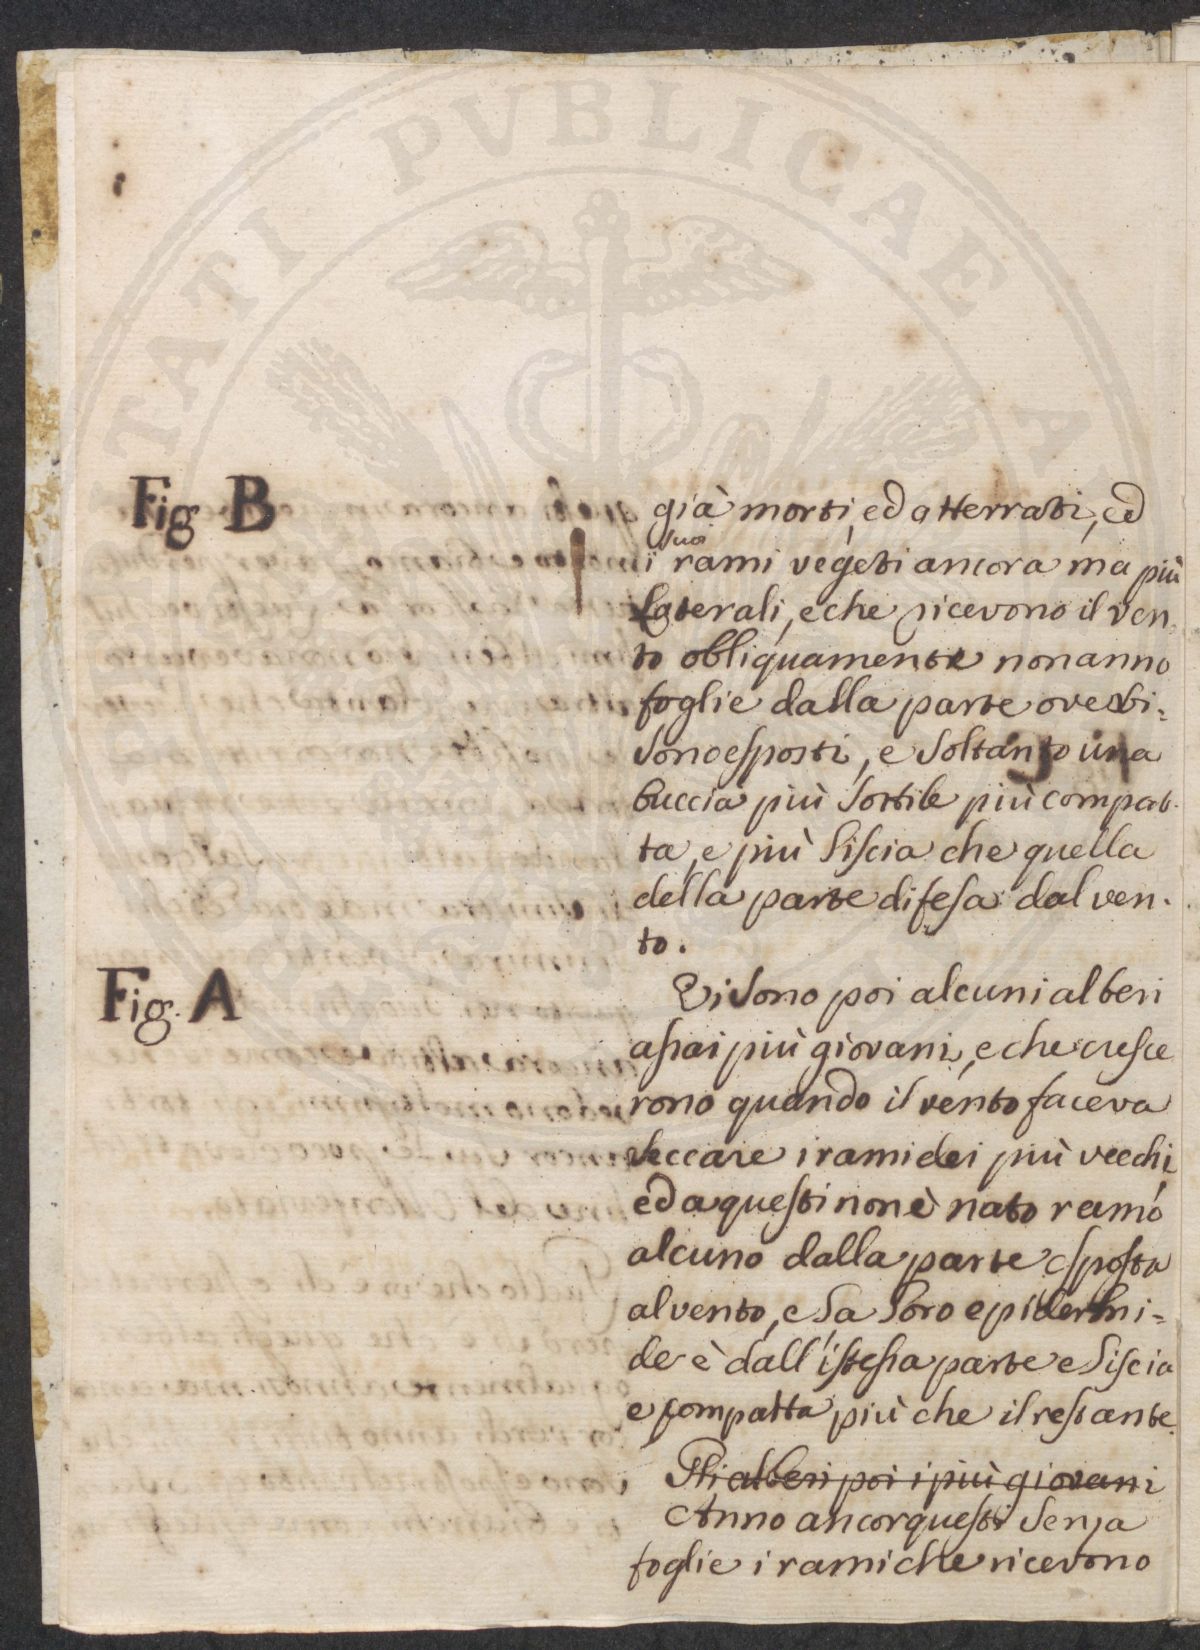 Fig B
già morti, ed atterrati, ed
suoi
i rami vegeti ancora ma più
laterali, e che ricevono il ven-
to obliquamente non anno
foglie dalla parte ove vi=
sono esposti, e soltanto una
buccia più sottile più compat-
ta, e più liscia che quella
della parte difesa dal ven-
to.
Fig. A
Vi sono poi alcuni alberi
assai più giovani, e che cresce
rono quando il vento faceva
seccare i rami dei più vecchi,
ed a questi non è nato ramo
alcuno dalla parte esposta
al vento, e la loro epidermi=
de è dall'istessa parte e liscia
e compatta più che il restante.
Gli alberi poi i più giovani
Anno ancor questi senza
foglie i rami che ricevono